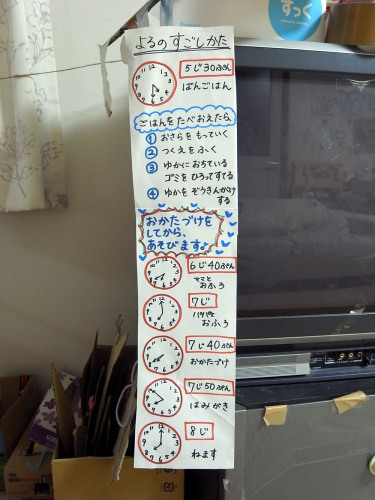 すっく
よるの すごしかた
5じ30ぷん
ばんごはん
ごはんを たべ おえたら
① おさらを もっていく
② つくえを ふく
③ ゆかに おちている
ゴミを ひろってすてる
④ ゆかを ぞうきんがけ
する
おかたづけを
してから、
あそびます。
6じ40ぷん
ママと
おふろ
7じ
パパと
おふろ
7じ40ぷん
おかたづけ
7じ50ぷん
はみがき
8じ
ねます